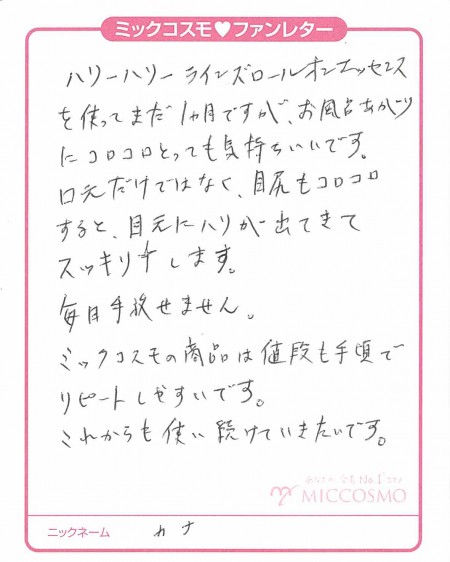 ミックコスモ♥ファンレター
ハリーハリー ラインズロールオンエッセンス
を使ってまだ1ヵ月ですが、お風呂あがり
にコロコロとっても気持ちいいです。
口元だけではなく、目尻もコロコロ
すると、目元にハリが出てきて
スッキリします。
毎日手放せません。
ミックコスモの商品は値段も手頃で
リピートしやすいです。
これからも使い続けていきたいです。
MICCOSMO
ニックネーム カナ